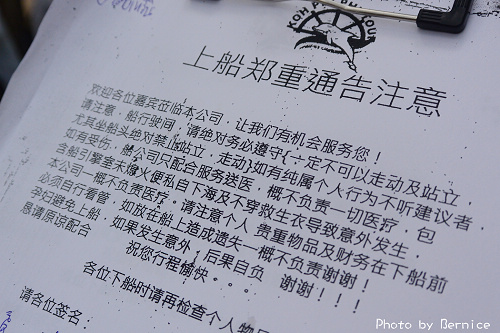 KOH
TOUR
上船郑重通告注意
欢迎各位嘉宾莅临本公司，让我们有机会服务您！
请注意，船行驶间，请绝对务必遵守{一定不可以走动及站立，
尤其坐船头绝对禁止站立，走动}如有纯属个人行为不听建议者，
如有受伤，本公司只配合服务送医，概不负责一切医疗，包
含船引擎室未熄火便私自下海及不穿救生衣导致意外发生，
本公司一概不负责医疗。请注意个人 贵重物品及财务在下船前
必须自行看管，如放在船上造成遗失一概不负责谢谢！
孕妇避免上船，如果发生意外，后果自负 谢谢！！！
恳请原谅配合
祝您行程愉快。。。
各位下船时请再检查个人物
请各位签名：
Photo by Bernice